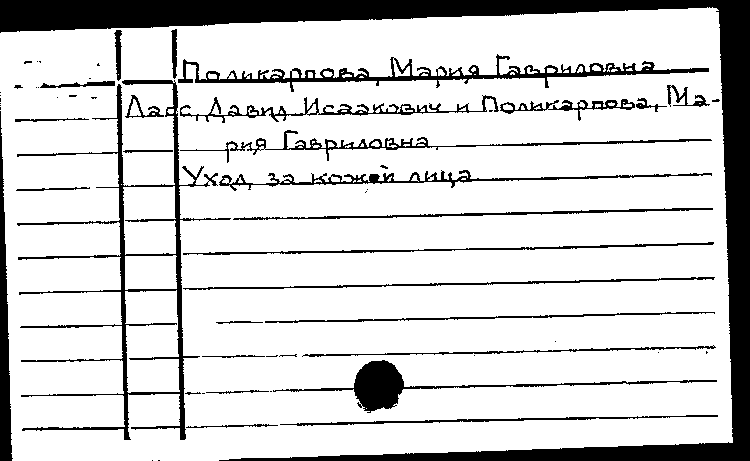 Поликарпова, Мария Гавриловна
Ласс, Давид Исаакович и Поликарпова, Ма-
рия Гавриловна.
Уход за кожей лица